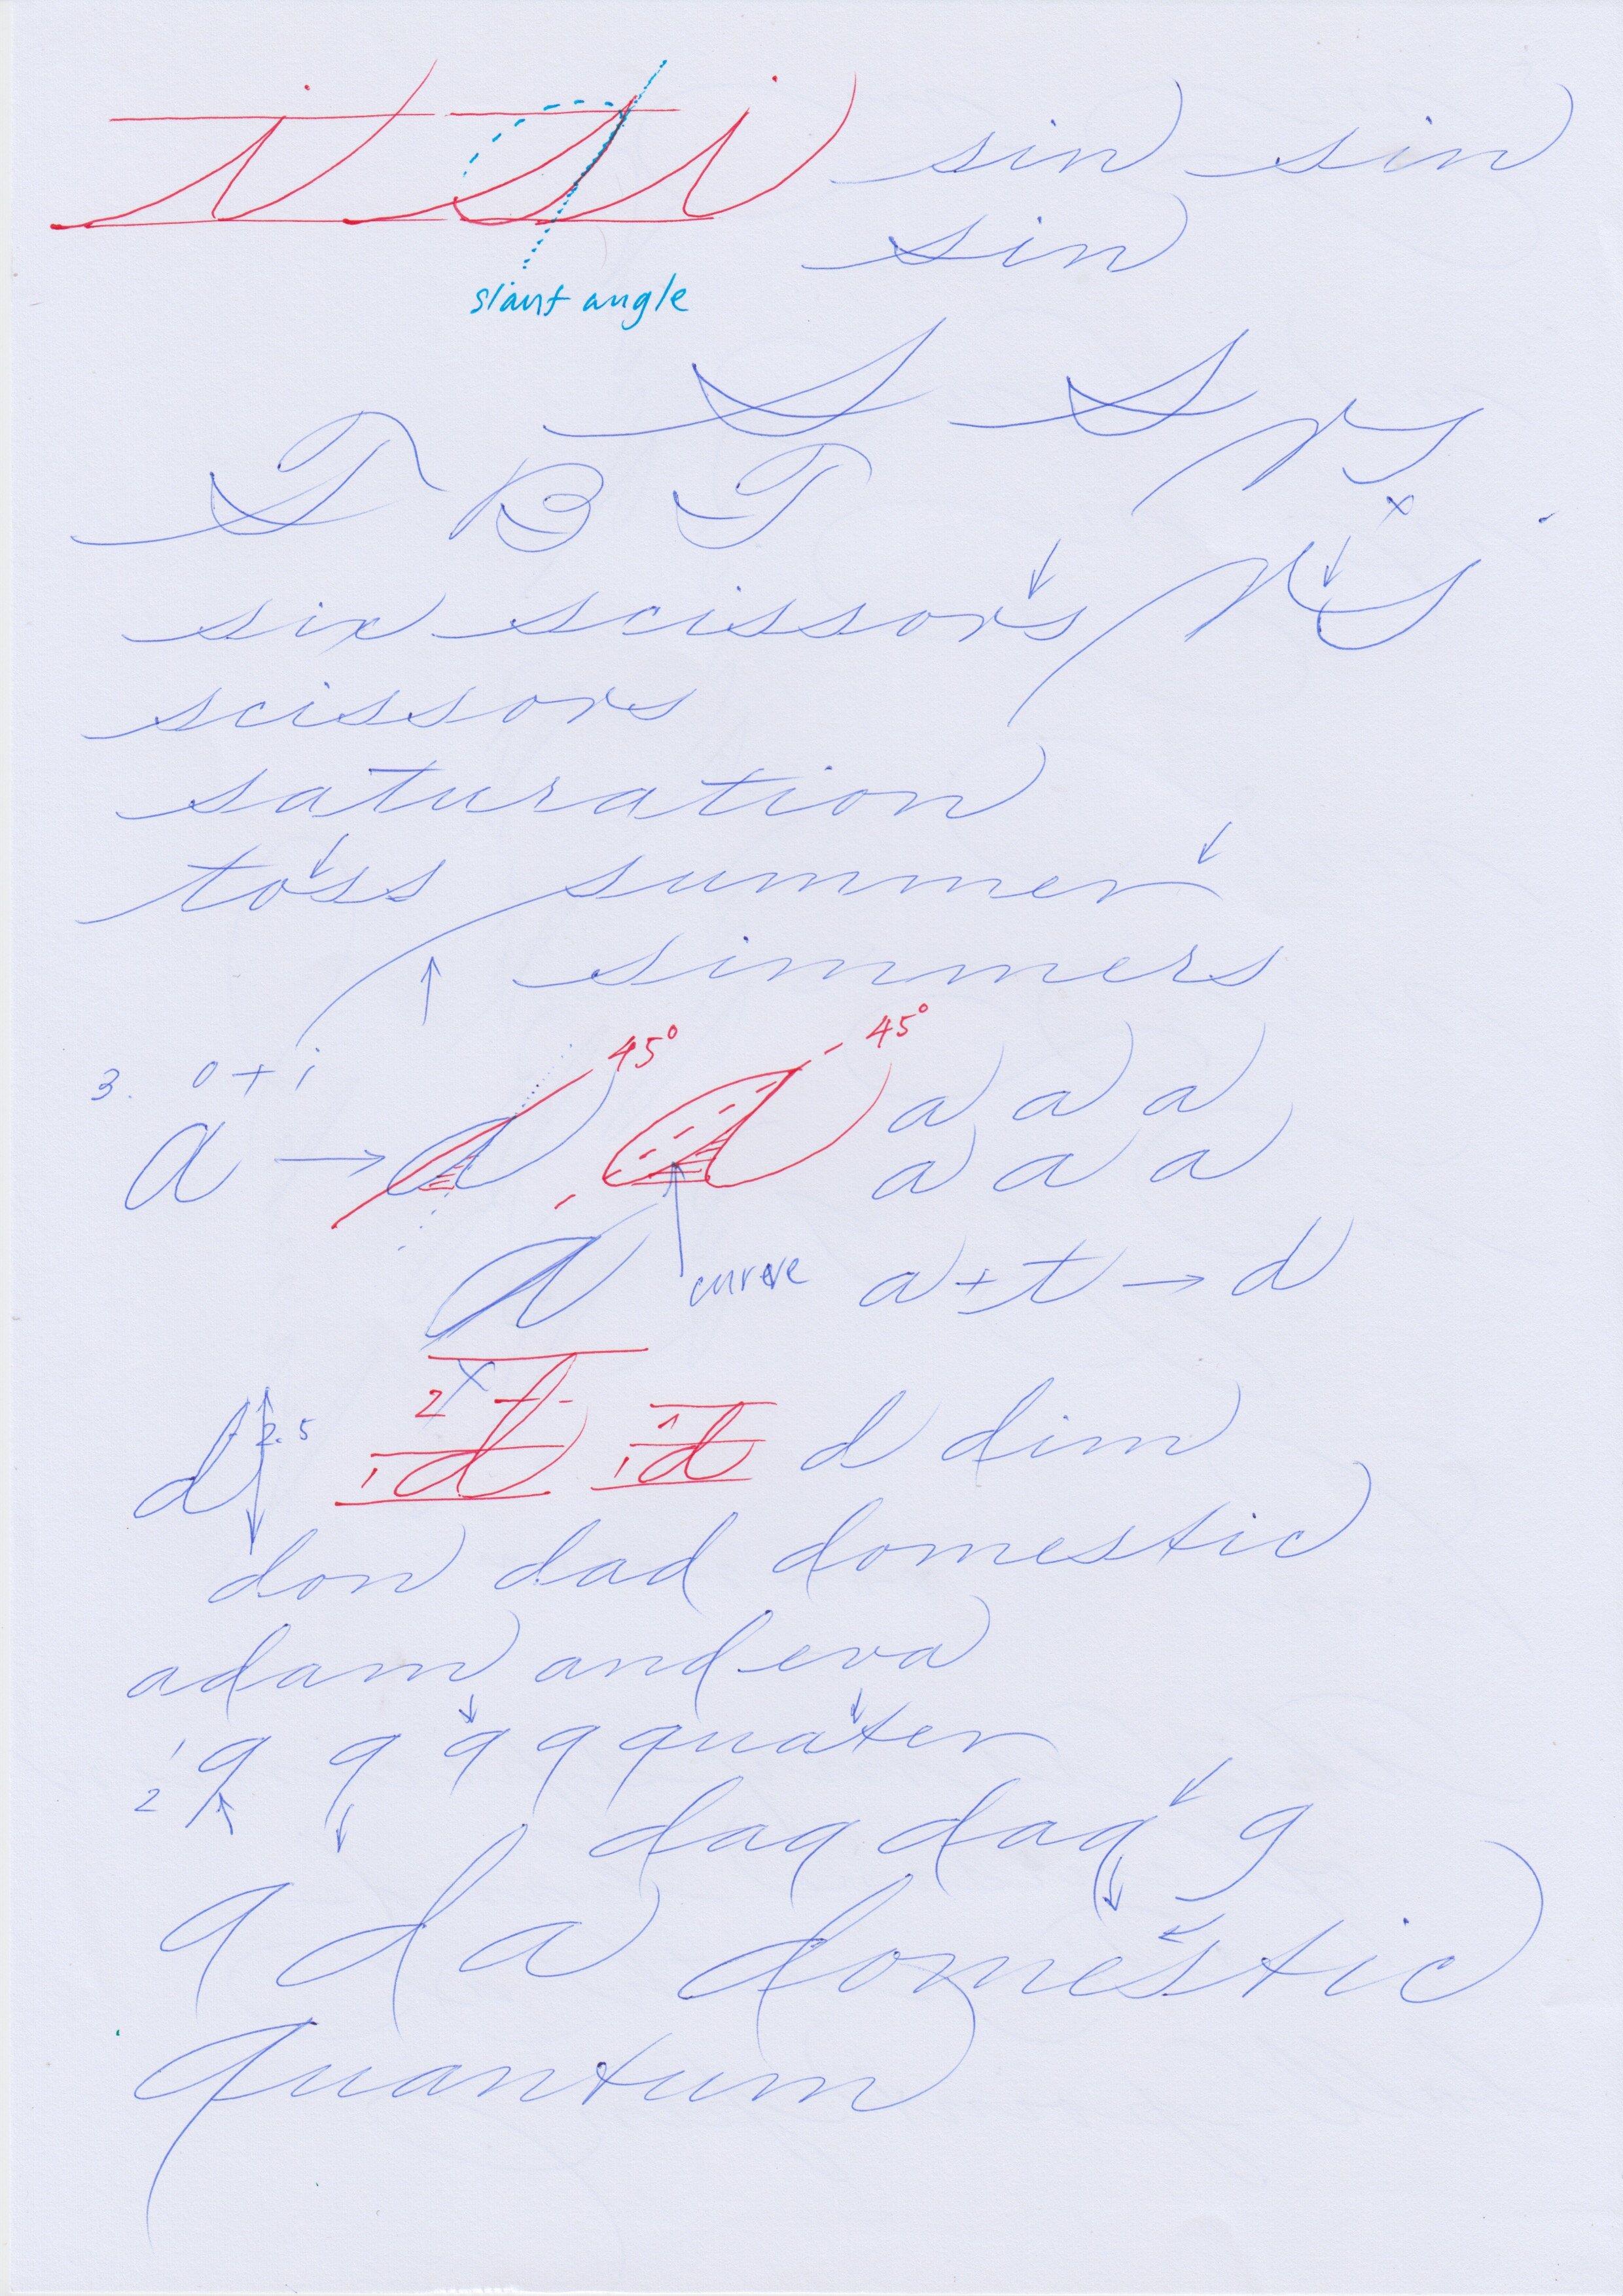 i si sin sin
sin
slant angle
S S rs
T B T x
six scissors rs
scissors
saturation
toss summer
simmers
45° 45°
3. o + i
a → a a a a a
a a a
a
curve a + t → d
x
d 2.5 2 1 d 1 1 d d dim
don dad domestic
adam and eva
1 2 q q q q quater
daq daq g
q d a domestic
quantum